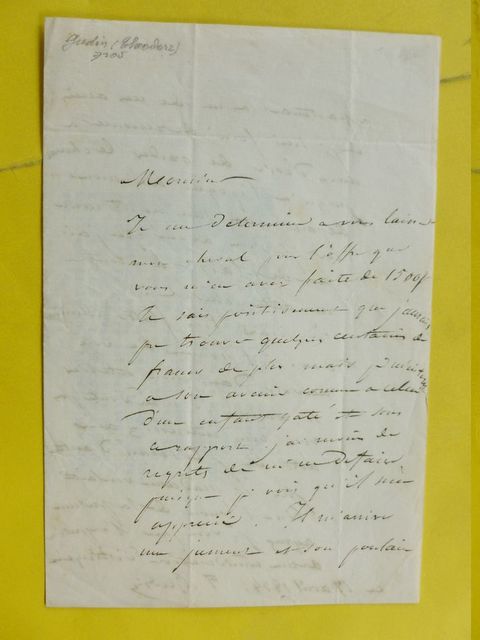 Gudin (Théodore)
Monsieur
Je me determine a vous laisser
mon cheval pour l'offre que
vous m'en avez faite de 1500f
Je sais positivement que j'aurais
pu trouver quelques centaines de
francs de plus mais
a son avenir comme a celui
d'un enfant gaté et sous
ce rapport j'ai moins de
regrets de m'en defaire
puisque je vois qu'il sera
apprecié. Il m'arrive
une jument et son poulain